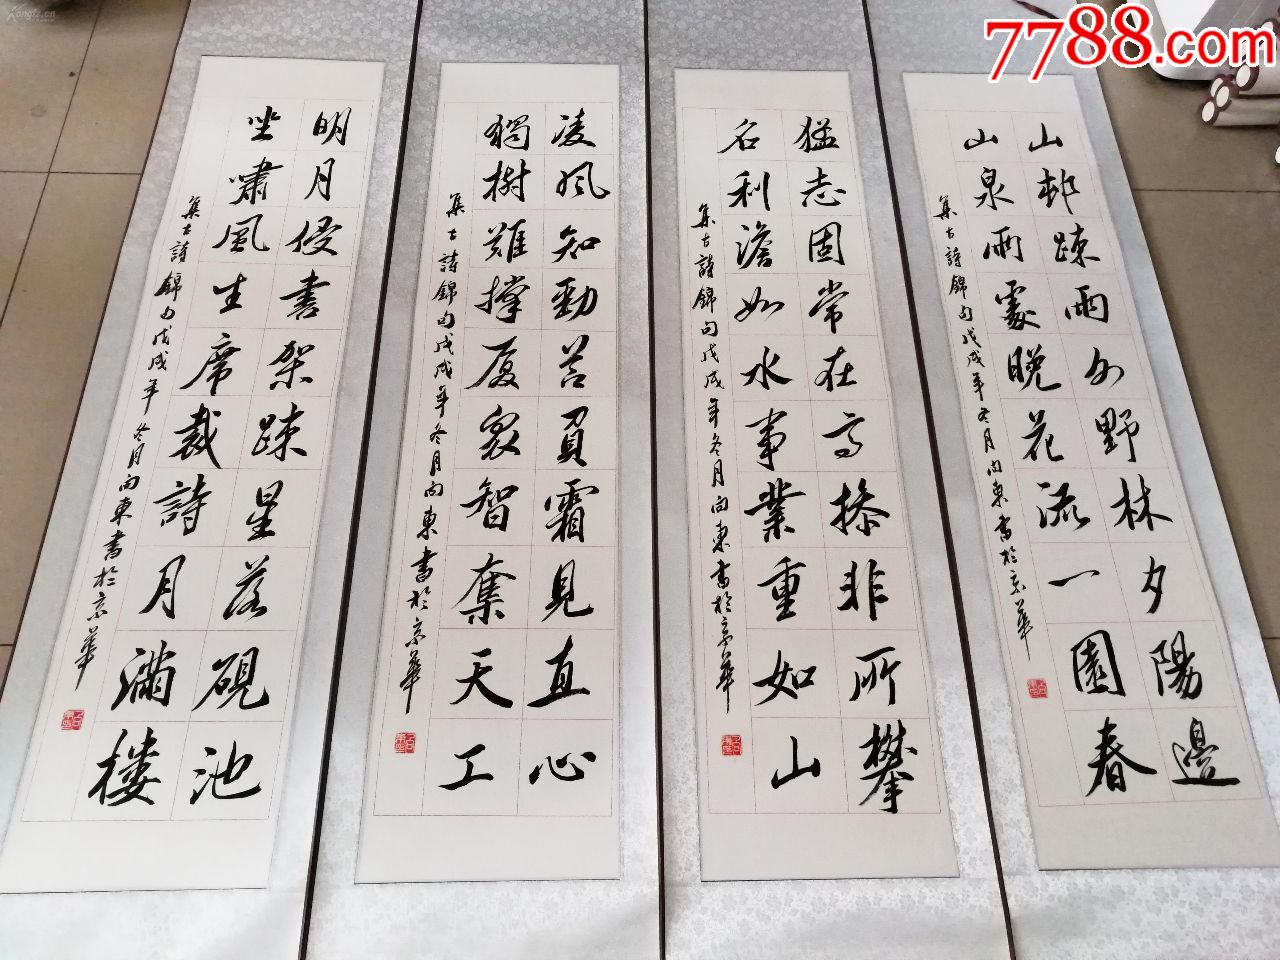 7788.com
山邨疎雨外野林夕陽邊
山泉雨處晚花流一園春
集古詩錦句戊戌年冬月向東書於京華
猛志固常在高操非所攀
名利澹如水事業重如山
集古詩錦句戊戌年冬月向東書於京華
凌風知勁莭負霜見直心
獨樹難撑厦衆智奪天工
集古詩錦句戊戌年冬月向東書於京華
明月侵書架疎星落硯池
坐嘯風生席裁詩月滿樓
集古詩錦句戊戌年冬月向東書於京華